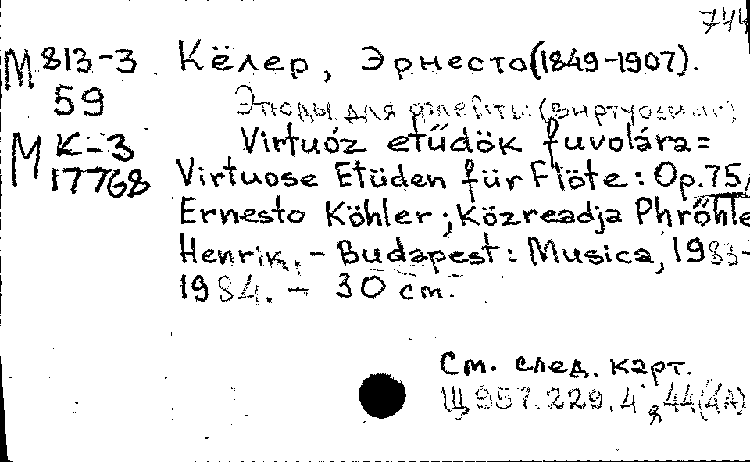 744
М 813-3 Кёлер, Эрнесто (1849-1907).
59 Этюды для флейты: (виртуозные)
М К-3 Virtuóz etűdök fuvolára =
17768 Virtuose Etüden für Flöte : Op. 75 /
Ernesto Köhler ; Közreadja Phrőhle
Henrik. – Budapest : Musica, 1983-
1984. – 30 cm.
См. след. карт.
Щ 957.229.4 я 44 (4А)